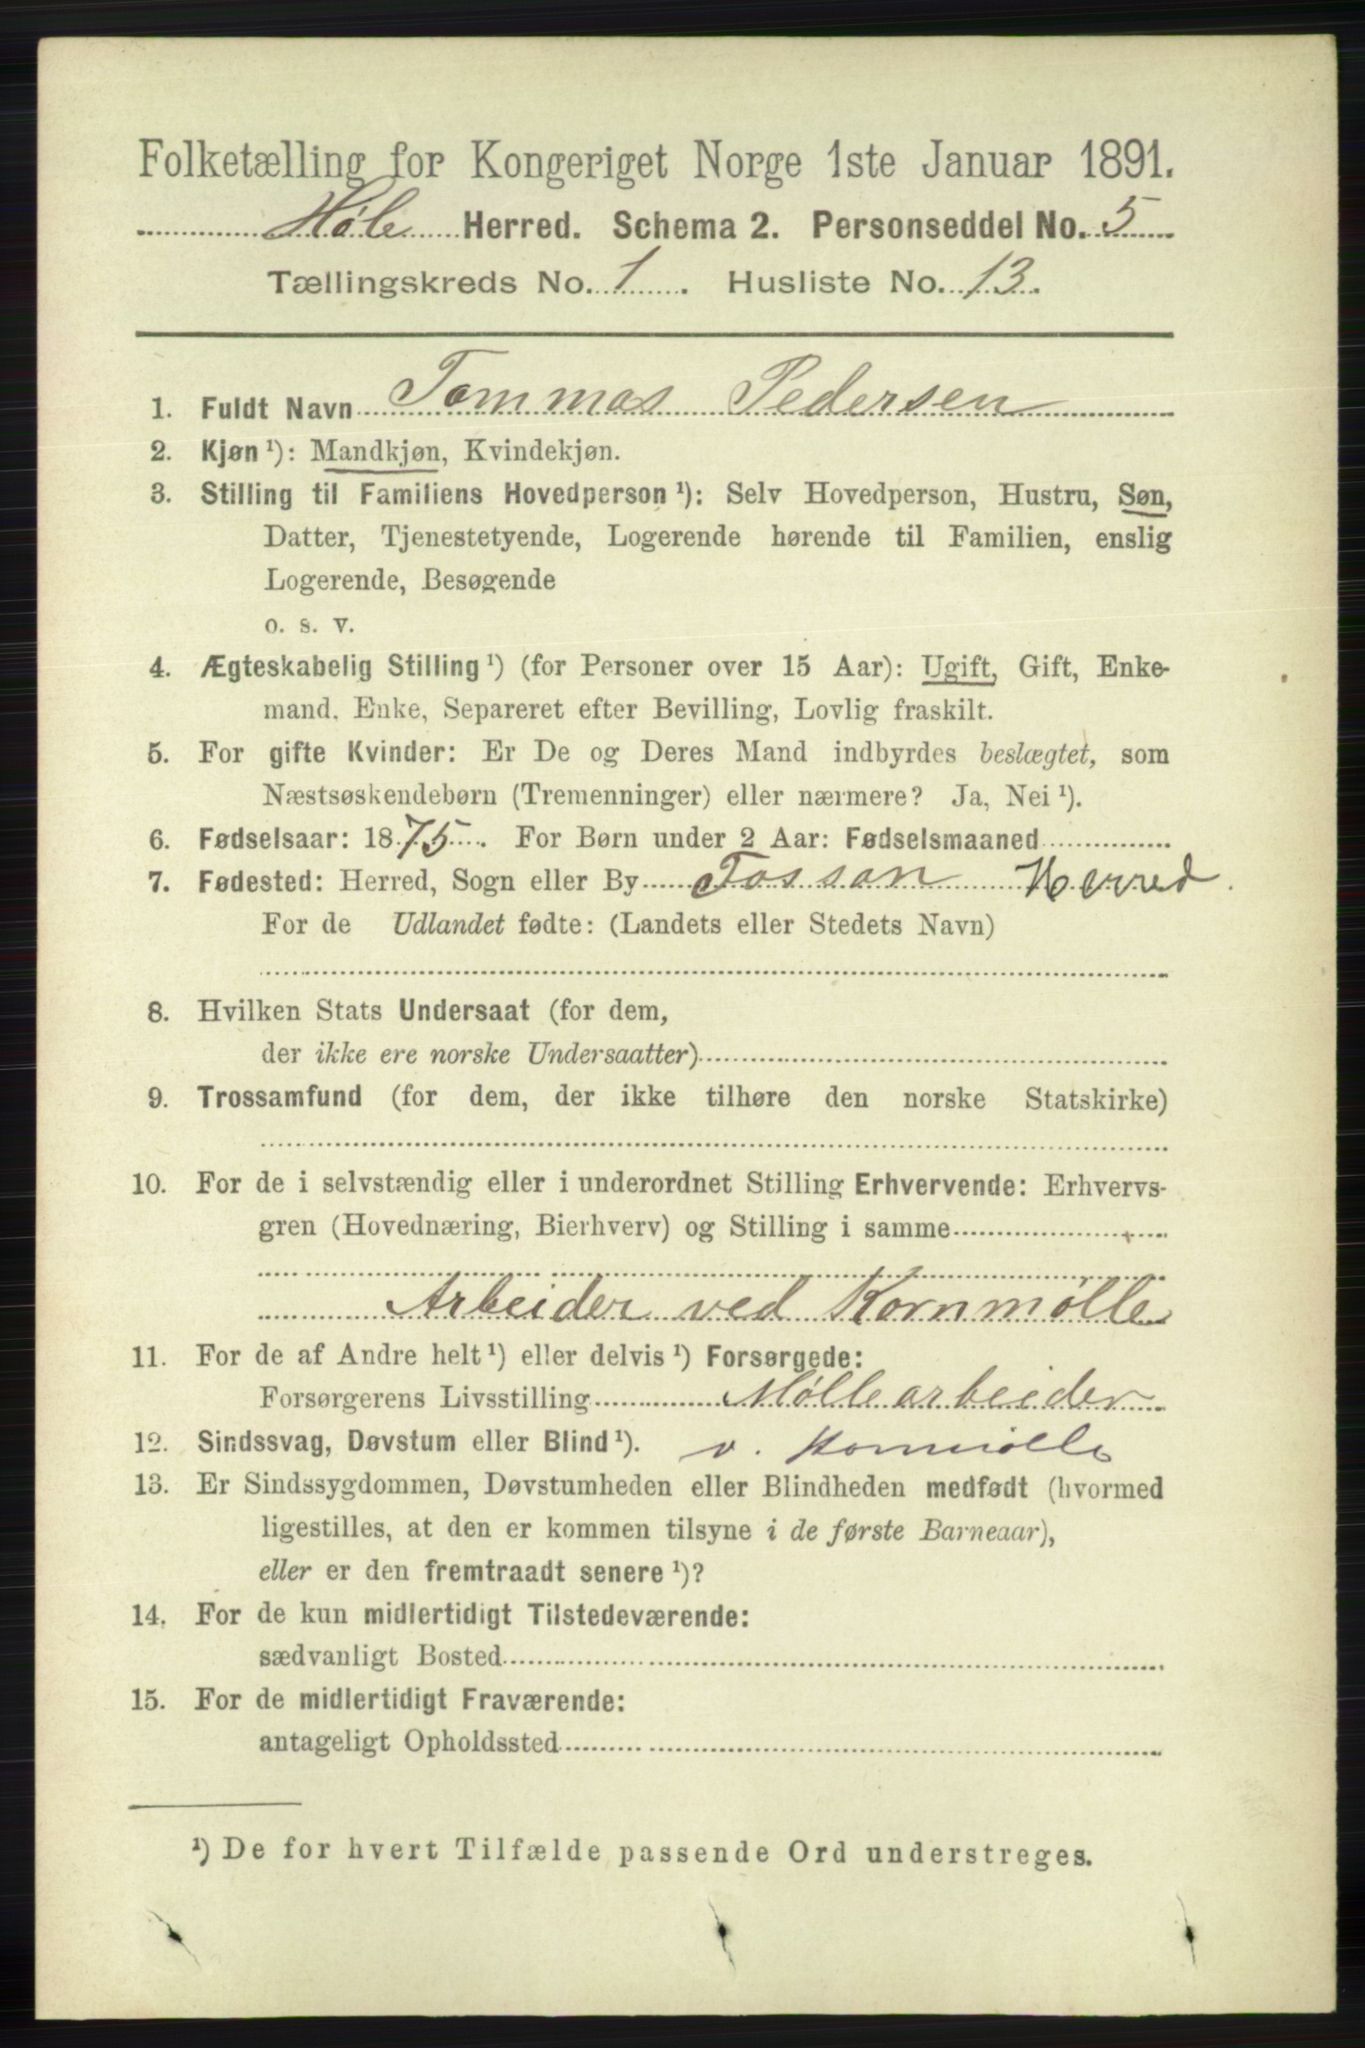 Folketælling for Kongeriget Norge 1ste Januar 1891.
Høle Herred. Schema 2. Personseddel No. 5
Tællingskreds No. 1. Husliste No. 13.
1. Fuldt Navn Tommas Pedersen
2. Kjøn ¹): Mandkjøn, Kvindekjøn.
3. Stilling til Familiens Hovedperson ¹): Selv Hovedperson, Hustru, Søn,
Datter, Tjenestetyende, Logerende hørende til Familien, enslig
Logerende, Besøgende
o. s. v.
4. Ægteskabelig Stilling ¹) (for Personer over 15 Aar): Ugift, Gift, Enke-
mand, Enke, Separeret efter Bevilling, Lovlig fraskilt.
5. For gifte Kvinder: Er De og Deres Mand indbyrdes beslægtet, som
Næstsøskendebørn (Tremenninger) eller nærmere? Ja, Nei ¹).
6. Fødselsaar: 1875. For Børn under 2 Aar: Fødselsmaaned
7. Fødested: Herred, Sogn eller By Fossan Herred.
For de Udlandet fødte: (Landets eller Stedets Navn)
8. Hvilken Stats Undersaat (for dem,
der ikke ere norske Undersaatter)
9. Trossamfund (for dem, der ikke tilhøre den norske Statskirke)
10. For de i selvstændig eller i underordnet Stilling Erhvervende: Erhvervs-
gren (Hovednæring, Bierhverv) og Stilling i samme
Arbeider ved Kornmølle
11. For de af Andre helt ¹) eller delvis ¹) Forsørgede:
Forsørgerens Livsstilling Møllearbeider
12. Sindssvag, Døvstum eller Blind ¹). v. Kornmølle
13. Er Sindssygdommen, Døvstumheden eller Blindheden medfødt (hvormed
ligestilles, at den er kommen tilsyne i de første Barneaar),
eller er den fremtraadt senere ¹)?
14. For de kun midlertidigt Tilstedeværende:
sædvanligt Bosted
15. For de midlertidigt Fraværende:
antageligt Opholdssted
¹) De for hvert Tilfælde passende Ord understreges.